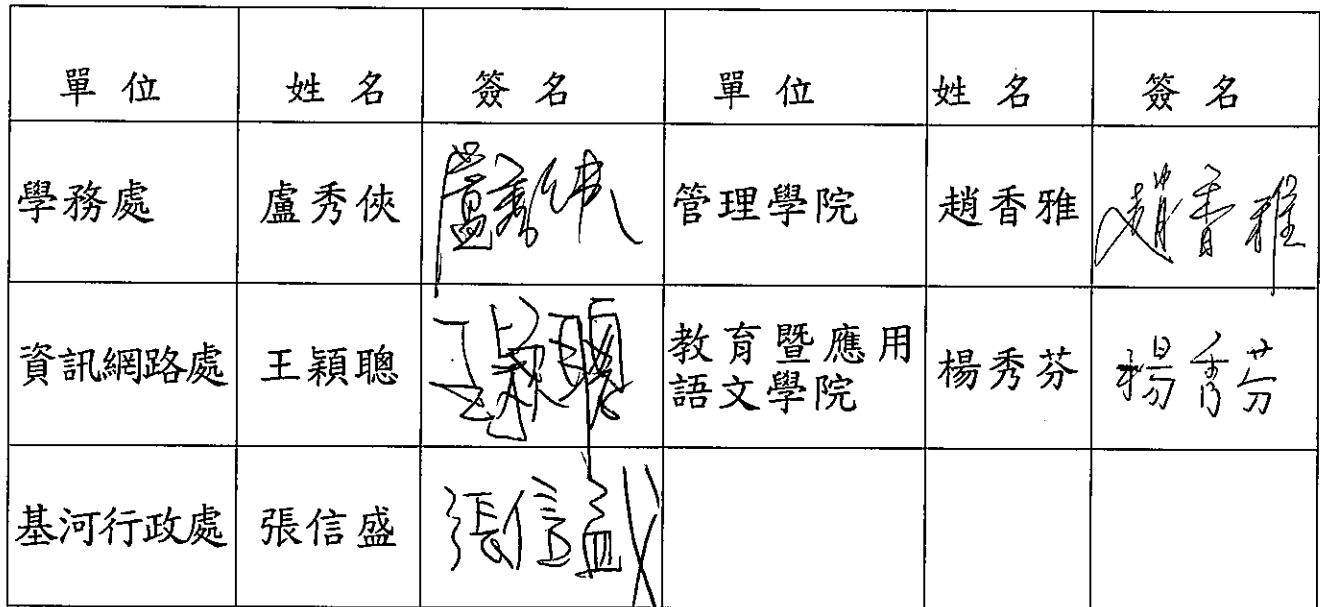 單位 姓名 簽名 單位 姓名 簽名
學務處 盧秀俠 盧秀俠 管理學院 趙香雅 趙香雅
資訊網路處 王穎聰 王穎聰 教育暨應用 楊秀芬 楊秀芬
語文學院
基河行政處 張信盛 張信盛